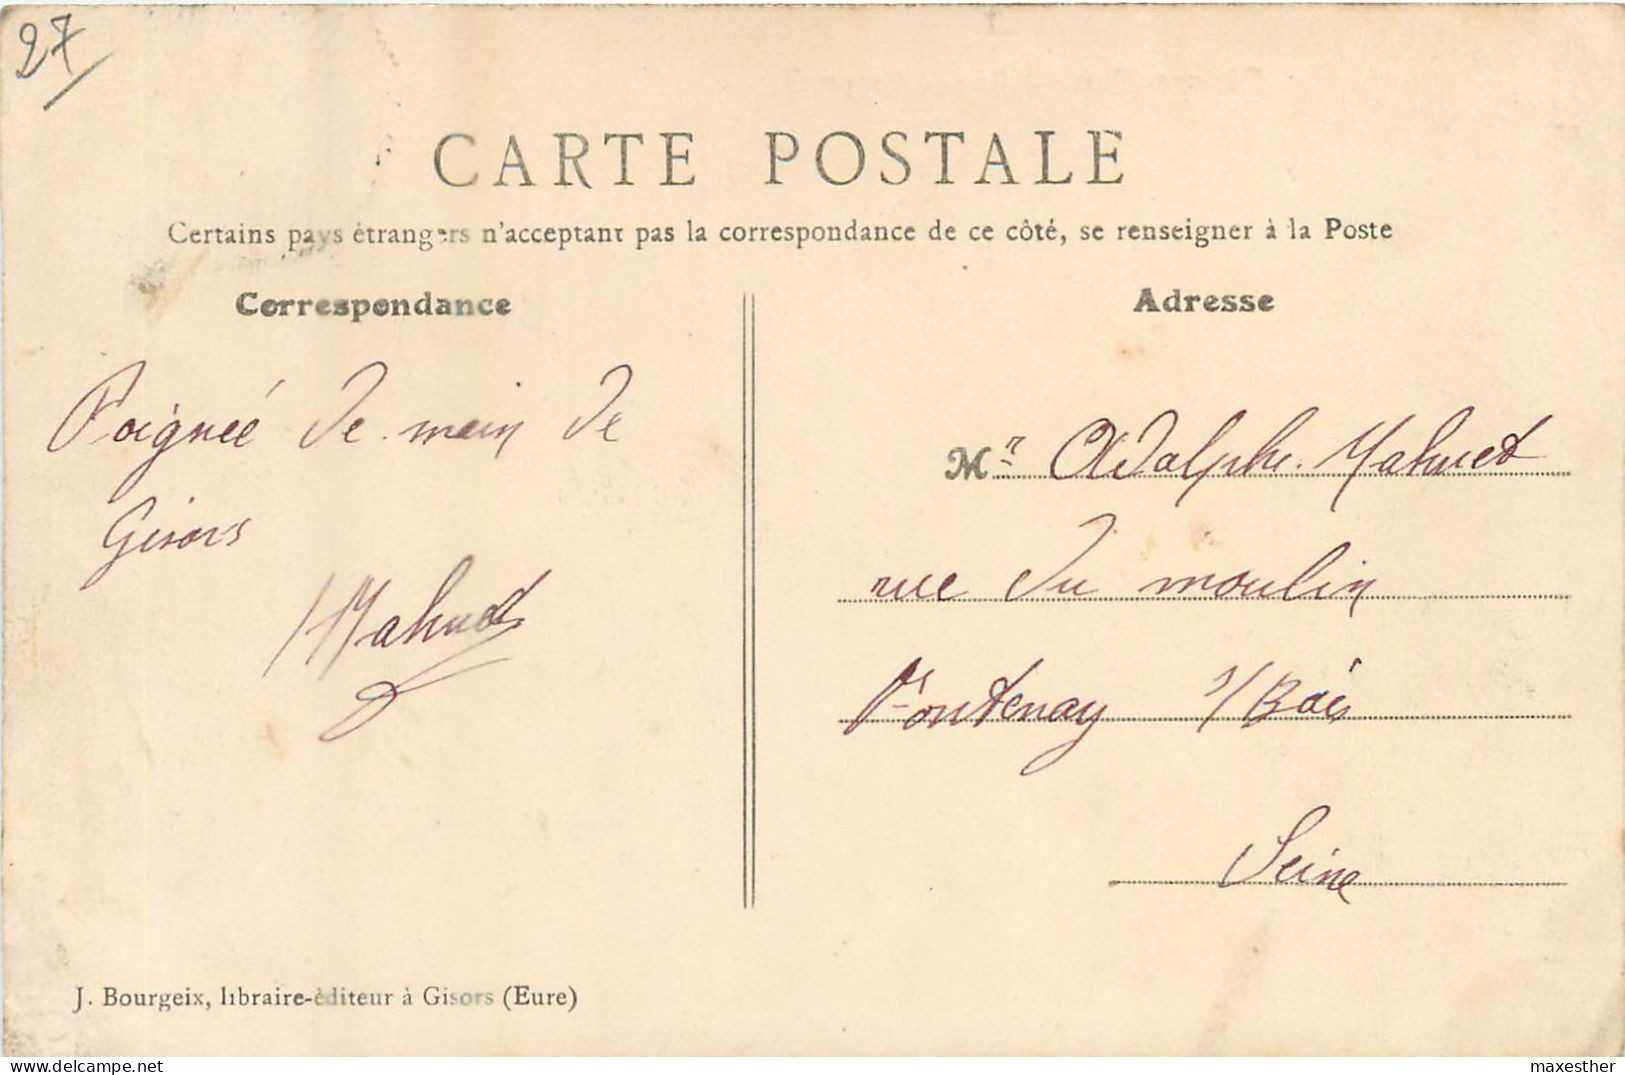 27
CARTE POSTALE
Certains pays étrangers n'acceptant pas la correspondance de ce côté, se renseigner à la Poste
Correspondance
Poignée de main de
Gisors
Mahuet
J. Bourgeix, libraire-éditeur à Gisors (Eure)
Adresse
Mr Adolphe Mahuet
rue du moulin
Fontenay s/Bois
Seine
maxesther